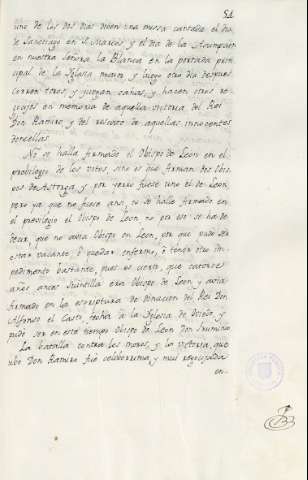 51
uno de los dos dias dicen una missa cantada el dia
de Santiago en S. Marcos y el dia de la Assumpcion
en nuestra Señora la Blanca en la portada prin
cipal de la Iglesia mayor y luego otro dia despues
corren toros, y juegan cañas, y hacen otros re
gocijos en memoria de aquella victoria del Rei
Don Ramiro, y del rescate de aquellas innocentes
doncellas.
No se halla firmado el Obispo de Leon en el
previlegio de los votos, sino es que firman dos Obis
pos de Astorga, y por yerro fuese uno el de Leon,
pero ya que no fuese ansi, ni se halle firmado en
el previlegio el Obispo de Leon no por eso se ha de
decir, que no avia Obispo en Leon, por que pudo ser
estar vacante, ó quedar enfermo, ó tener otro im
pedimento bastante, pues es cierto, que catorce
años antes Suintila era Obispo de Leon, y avia
firmado en la escriptura de donacion del Rei Don
Alfonso el Casto, fecha á la Iglesia de Oviedo, y
pudo ser en este tiempo Obispo de Leon Don
La batalla contra los moros, y la victoria, que
ubo Don Ramiro fue celeberrima y mui regocijada
en-